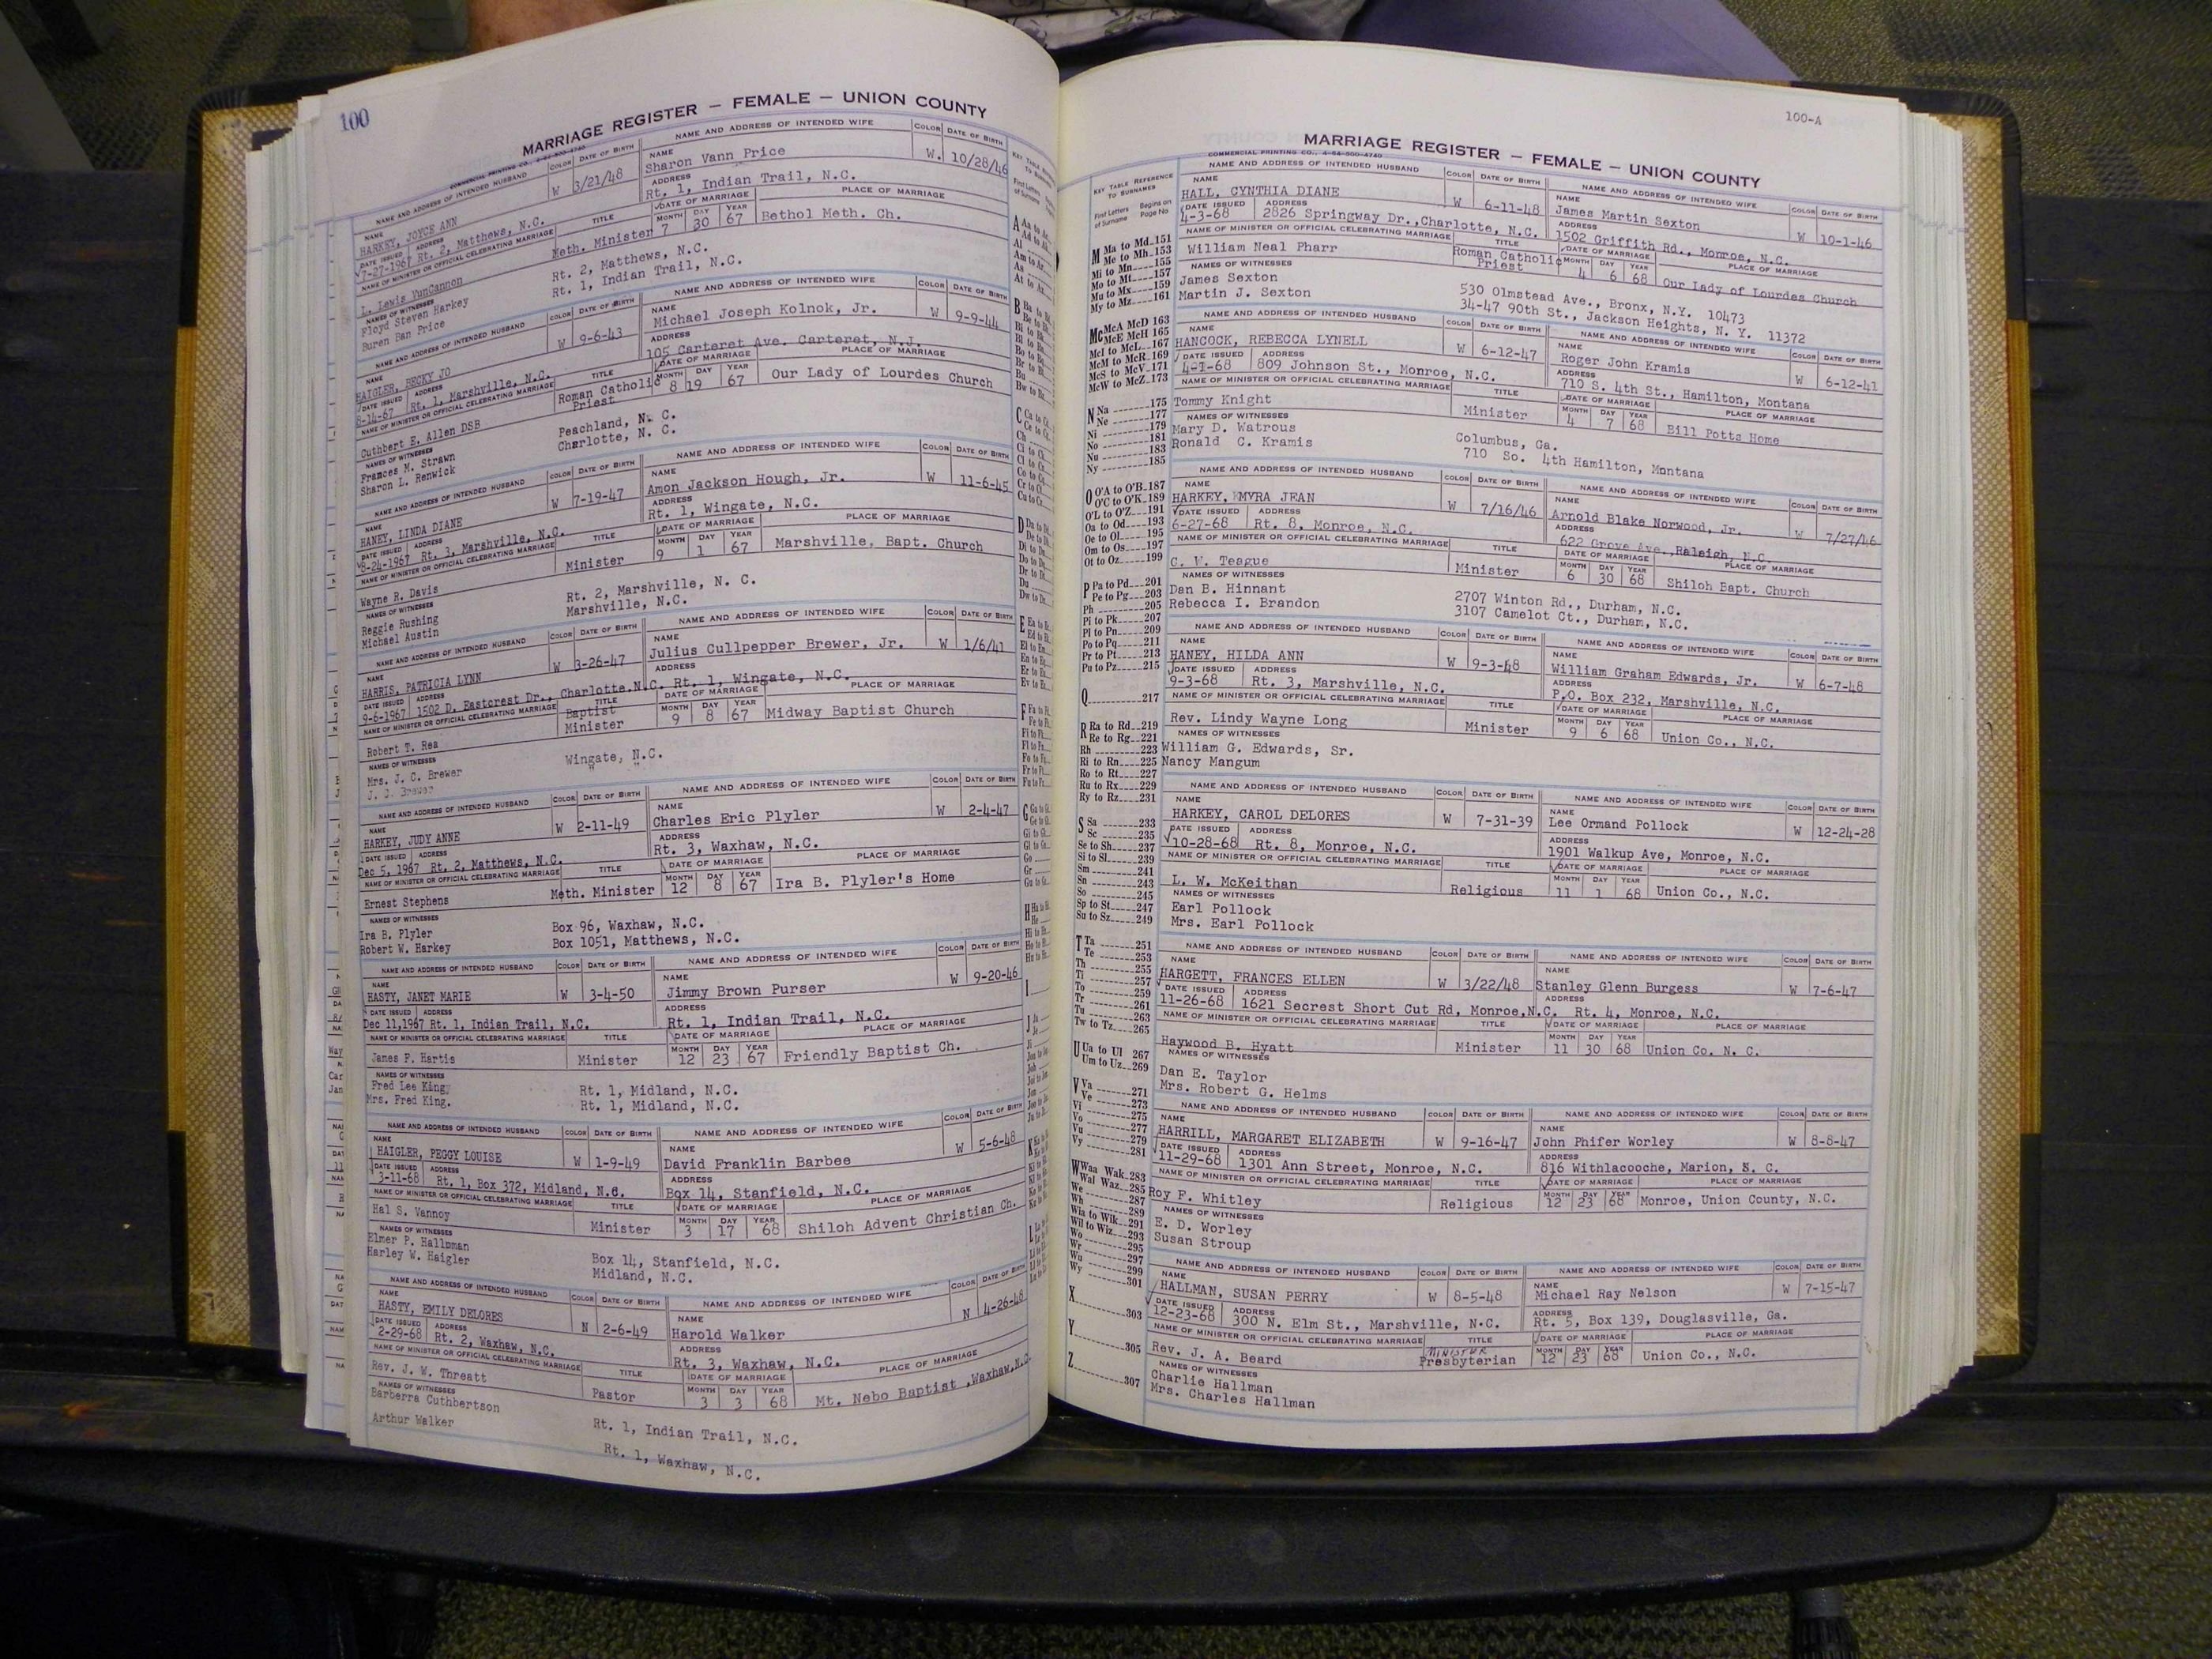 100
MARRIAGE REGISTER — FEMALE — UNION COUNTY
COMMERCIAL PRINTING CO., 4-64-500-4740
NAME AND ADDRESS OF INTENDED HUSBAND COLOR DATE OF BIRTH NAME AND ADDRESS OF INTENDED WIFE COLOR DATE OF BIRTH
NAME HARKEY, JOYCE ANN W 3/21/48 NAME Sharon Vann Price W. 10/28/46
DATE ISSUED 7-27-1967 ADDRESS Rt. 2, Matthews, N.C. ADDRESS Rt. 1, Indian Trail, N.C.
NAME OF MINISTER OR OFFICIAL CELEBRATING MARRIAGE TITLE DATE OF MARRIAGE PLACE OF MARRIAGE
L. Lewis VunCannon Meth. Minister MONTH 7 DAY 30 YEAR 67 Bethol Meth. Ch.
NAMES OF WITNESSES
Floyd Steven Harkey Rt. 2, Matthews, N.C.
Buren Ban Price Rt. 1, Indian Trail, N.C.
NAME AND ADDRESS OF INTENDED HUSBAND COLOR DATE OF BIRTH NAME AND ADDRESS OF INTENDED WIFE COLOR DATE OF BIRTH
NAME HAIGLER, BECKY JO W 9-6-43 NAME Michael Joseph Kolnok, Jr. W 9-9-44
DATE ISSUED 8-14-67 ADDRESS Rt. 1, Marshville, N.C. ADDRESS 105 Carteret Ave. Carteret, N.J.
NAME OF MINISTER OR OFFICIAL CELEBRATING MARRIAGE TITLE DATE OF MARRIAGE PLACE OF MARRIAGE
Cuthbert E. Allen DSB Roman Catholic Priest MONTH 8 DAY 19 YEAR 67 Our Lady of Lourdes Church
NAMES OF WITNESSES
Frances M. Strawn Peachland, N. C.
Sharon L. Renwick Charlotte, N. C.
NAME AND ADDRESS OF INTENDED HUSBAND COLOR DATE OF BIRTH NAME AND ADDRESS OF INTENDED WIFE COLOR DATE OF BIRTH
NAME HANEY, LINDA DIANE W 7-19-47 NAME Amon Jackson Hough, Jr. W 11-6-45
DATE ISSUED 8-24-1967 ADDRESS Rt. 3, Marshville, N.C. ADDRESS Rt. 1, Wingate, N.C.
NAME OF MINISTER OR OFFICIAL CELEBRATING MARRIAGE TITLE DATE OF MARRIAGE PLACE OF MARRIAGE
Wayne R. Davis Minister MONTH 9 DAY 1 YEAR 67 Marshville, Bapt. Church
NAMES OF WITNESSES
Reggie Rushing Rt. 2, Marshville, N. C.
Michael Austin Marshville, N.C.
NAME AND ADDRESS OF INTENDED HUSBAND COLOR DATE OF BIRTH NAME AND ADDRESS OF INTENDED WIFE COLOR DATE OF BIRTH
NAME HARRIS, PATRICIA LYNN W 3-26-47 NAME Julius Cullpepper Brewer, Jr. W 1/6/41
DATE ISSUED 9-6-1967 ADDRESS 1502 D. Eastcrest Dr., Charlotte,N.C. ADDRESS Rt. 1, Wingate, N.C.
NAME OF MINISTER OR OFFICIAL CELEBRATING MARRIAGE TITLE DATE OF MARRIAGE PLACE OF MARRIAGE
Robert T. Rea Baptist Minister MONTH 9 DAY 8 YEAR 67 Midway Baptist Church
NAMES OF WITNESSES
Mrs. J. C. Brewer Wingate, N.C.
J. C. Brewer " "
NAME AND ADDRESS OF INTENDED HUSBAND COLOR DATE OF BIRTH NAME AND ADDRESS OF INTENDED WIFE COLOR DATE OF BIRTH
NAME HARKEY, JUDY ANNE W 2-11-49 NAME Charles Eric Plyler W 2-4-47
DATE ISSUED Dec 5, 1967 ADDRESS Rt. 2, Matthews, N.C. ADDRESS Rt. 3, Waxhaw, N.C.
NAME OF MINISTER OR OFFICIAL CELEBRATING MARRIAGE TITLE DATE OF MARRIAGE PLACE OF MARRIAGE
Ernest Stephens Meth. Minister MONTH 12 DAY 8 YEAR 67 Ira B. Plyler's Home
NAMES OF WITNESSES
Ira B. Plyler Box 96, Waxhaw, N.C.
Robert W. Harkey Box 1051, Matthews, N.C.
NAME AND ADDRESS OF INTENDED HUSBAND COLOR DATE OF BIRTH NAME AND ADDRESS OF INTENDED WIFE COLOR DATE OF BIRTH
NAME HASTY, JANET MARIE W 3-4-50 NAME Jimmy Brown Purser W 9-20-46
DATE ISSUED Dec 11,1967 ADDRESS Rt. 1, Indian Trail, N.C. ADDRESS Rt. 1, Indian Trail, N.C.
NAME OF MINISTER OR OFFICIAL CELEBRATING MARRIAGE TITLE DATE OF MARRIAGE PLACE OF MARRIAGE
James F. Hartis Minister MONTH 12 DAY 23 YEAR 67 Friendly Baptist Ch.
NAMES OF WITNESSES
Fred Lee King Rt. 1, Midland, N.C.
Mrs. Fred King. Rt. 1, Midland, N.C.
NAME AND ADDRESS OF INTENDED HUSBAND COLOR DATE OF BIRTH NAME AND ADDRESS OF INTENDED WIFE COLOR DATE OF BIRTH
NAME HAIGLER, PEGGY LOUISE W 1-9-49 NAME David Franklin Barbee W 5-6-48
DATE ISSUED 3-11-68 ADDRESS Rt. 1, Box 372, Midland, N.C. ADDRESS Box 14, Stanfield, N.C.
NAME OF MINISTER OR OFFICIAL CELEBRATING MARRIAGE TITLE DATE OF MARRIAGE PLACE OF MARRIAGE
Hal S. Vannoy Minister MONTH 3 DAY 17 YEAR 68 Shiloh Advent Christian Ch.
NAMES OF WITNESSES
Elmer P. Hallpman Box 14, Stanfield, N.C.
Harley W. Haigler Midland, N.C.
NAME AND ADDRESS OF INTENDED HUSBAND COLOR DATE OF BIRTH NAME AND ADDRESS OF INTENDED WIFE COLOR DATE OF BIRTH
NAME HASTY, EMILY DELORES N 2-6-49 NAME Harold Walker N 4-26-48
DATE ISSUED 2-29-68 ADDRESS Rt. 2, Waxhaw, N.C. ADDRESS Rt. 3, Waxhaw, N.C.
NAME OF MINISTER OR OFFICIAL CELEBRATING MARRIAGE TITLE DATE OF MARRIAGE PLACE OF MARRIAGE
Rev. J. W. Threatt Pastor MONTH 3 DAY 3 YEAR 68 Mt. Nebo Baptist ,Waxhaw,N.C.
NAMES OF WITNESSES
Barberra Cuthbertson Rt. 1, Indian Trail, N.C.
Arthur Walker Rt. 1, Waxhaw, N.C.
100-A
MARRIAGE REGISTER — FEMALE — UNION COUNTY
COMMERCIAL PRINTING CO., 4-64-500-4740
KEY TABLE REFERENCE TO SURNAMES
First Letters of Surname Begins on Page No
M Ma to Md 151
Me to Mh 153
Mi to Mn 155
Mo to Mt 157
Mu to Mx 159
My to Mz 161
Mc McA McD 163
McE McH 165
McI to McL 167
McM to McR 169
McS to McV 171
McW to McZ 173
N Na 175
Ne 177
Ni 179
No 181
Nu 183
Ny 185
O O'A to O'B 187
O'C to O'K 189
O'L to O'Z 191
Oa to Od 193
Oe to Ol 195
Om to Os 197
Ot to Oz 199
P Pa to Pd 201
Pe to Pg 203
Ph 205
Pi to Pk 207
Pl to Pn 209
Po to Pq 211
Pr to Pt 213
Pu to Pz 215
Q 217
R Ra to Rd 219
Re to Rg 221
Rh 223
Ri to Rn 225
Ro to Rt 227
Ru to Rx 229
Ry to Rz 231
S Sa 233
Sc 235
Se to Sh 237
Si to Sl 239
Sm 241
Sn 243
So 245
Sp to St 247
Su to Sz 249
T Ta 251
Te 253
Th 255
Ti 257
To 259
Tr 261
Tu 263
Tw to Tz 265
U Ua to Ul 267
Um to Uz 269
V Va 271
Ve 273
Vi 275
Vo 277
Vu 279
Vy 281
W Waa Wak 283
Wal Waz 285
We 287
Wh 289
Wia to Wik 291
Wil to Wiz 293
Wo 295
Wr 297
Wu 299
Wy 301
X 303
Y 305
Z 307
NAME AND ADDRESS OF INTENDED HUSBAND COLOR DATE OF BIRTH NAME AND ADDRESS OF INTENDED WIFE COLOR DATE OF BIRTH
NAME HALL, CYNTHIA DIANE W 6-11-48 NAME James Martin Sexton W 10-1-46
DATE ISSUED 4-3-68 ADDRESS 2826 Springway Dr.,Charlotte, N.C. ADDRESS 1502 Griffith Rd., Monroe, N.C.
NAME OF MINISTER OR OFFICIAL CELEBRATING MARRIAGE TITLE DATE OF MARRIAGE PLACE OF MARRIAGE
William Neal Pharr Roman Catholic Priest MONTH 4 DAY 6 YEAR 68 Our Lady of Lourdes Church
NAMES OF WITNESSES
James Sexton 530 Olmstead Ave., Bronx, N.Y. 10473
Martin J. Sexton 34-47 90th St., Jackson Heights, N. Y. 11372
NAME AND ADDRESS OF INTENDED HUSBAND COLOR DATE OF BIRTH NAME AND ADDRESS OF INTENDED WIFE COLOR DATE OF BIRTH
NAME HANCOCK, REBECCA LYNELL W 6-12-47 NAME Roger John Kramis W 6-12-41
DATE ISSUED 4-1-68 ADDRESS 809 Johnson St., Monroe, N.C. ADDRESS 710 S. 4th St., Hamilton, Montana
NAME OF MINISTER OR OFFICIAL CELEBRATING MARRIAGE TITLE DATE OF MARRIAGE PLACE OF MARRIAGE
Tommy Knight Minister MONTH 4 DAY 7 YEAR 68 Bill Potts Home
NAMES OF WITNESSES
Mary D. Watrous Columbus, Ga.
Ronald C. Kramis 710 So. 4th Hamilton, Montana
NAME AND ADDRESS OF INTENDED HUSBAND COLOR DATE OF BIRTH NAME AND ADDRESS OF INTENDED WIFE COLOR DATE OF BIRTH
NAME HARKEY, MYRA JEAN W 7/16/46 NAME Arnold Blake Norwood, Jr. W 7/27/46
DATE ISSUED 6-27-68 ADDRESS Rt. 8, Monroe, N.C. ADDRESS 622 Grove Ave.,Raleigh, N.C.
NAME OF MINISTER OR OFFICIAL CELEBRATING MARRIAGE TITLE DATE OF MARRIAGE PLACE OF MARRIAGE
C. W. Teague Minister MONTH 6 DAY 30 YEAR 68 Shiloh Bapt. Church
NAMES OF WITNESSES
Dan B. Hinnant 2707 Winton Rd., Durham, N.C.
Rebecca I. Brandon 3107 Camelot Ct., Durham, N.C.
NAME AND ADDRESS OF INTENDED HUSBAND COLOR DATE OF BIRTH NAME AND ADDRESS OF INTENDED WIFE COLOR DATE OF BIRTH
NAME HANEY, HILDA ANN W 9-3-48 NAME William Graham Edwards, Jr. W 6-7-48
DATE ISSUED 9-3-68 ADDRESS Rt. 3, Marshville, N.C. ADDRESS P.O. Box 232, Marshville, N.C.
NAME OF MINISTER OR OFFICIAL CELEBRATING MARRIAGE TITLE DATE OF MARRIAGE PLACE OF MARRIAGE
Rev. Lindy Wayne Long Minister MONTH 9 DAY 6 YEAR 68 Union Co., N.C.
NAMES OF WITNESSES
William G. Edwards, Sr.
Nancy Mangum
NAME AND ADDRESS OF INTENDED HUSBAND COLOR DATE OF BIRTH NAME AND ADDRESS OF INTENDED WIFE COLOR DATE OF BIRTH
NAME HARKEY, CAROL DELORES W 7-31-39 NAME Lee Ormand Pollock W 12-24-28
DATE ISSUED 10-28-68 ADDRESS Rt. 8, Monroe, N.C. ADDRESS 1901 Walkup Ave, Monroe, N.C.
NAME OF MINISTER OR OFFICIAL CELEBRATING MARRIAGE TITLE DATE OF MARRIAGE PLACE OF MARRIAGE
L. W. McKeithan Religious MONTH 11 DAY 1 YEAR 68 Union Co., N.C.
NAMES OF WITNESSES
Earl Pollock
Mrs. Earl Pollock
NAME AND ADDRESS OF INTENDED HUSBAND COLOR DATE OF BIRTH NAME AND ADDRESS OF INTENDED WIFE COLOR DATE OF BIRTH
NAME HARGETT, FRANCES ELLEN W 3/22/48 NAME Stanley Glenn Burgess W 7-6-47
DATE ISSUED 11-26-68 ADDRESS 1621 Secrest Short Cut Rd, Monroe,N.C. ADDRESS Rt. 4, Monroe, N.C.
NAME OF MINISTER OR OFFICIAL CELEBRATING MARRIAGE TITLE DATE OF MARRIAGE PLACE OF MARRIAGE
Haywood B. Hyatt Minister MONTH 11 DAY 30 YEAR 68 Union Co. N. C.
NAMES OF WITNESSES
Dan E. Taylor
Mrs. Robert G. Helms
NAME AND ADDRESS OF INTENDED HUSBAND COLOR DATE OF BIRTH NAME AND ADDRESS OF INTENDED WIFE COLOR DATE OF BIRTH
NAME HARRILL, MARGARET ELIZABETH W 9-16-47 NAME John Phifer Worley W 8-8-47
DATE ISSUED 11-29-68 ADDRESS 1301 Ann Street, Monroe, N.C. ADDRESS 816 Withlacooche, Marion, S. C.
NAME OF MINISTER OR OFFICIAL CELEBRATING MARRIAGE TITLE DATE OF MARRIAGE PLACE OF MARRIAGE
Roy F. Whitley Religious MONTH 12 DAY 23 YEAR 68 Monroe, Union County, N.C.
NAMES OF WITNESSES
E. D. Worley
Susan Stroup
NAME AND ADDRESS OF INTENDED HUSBAND COLOR DATE OF BIRTH NAME AND ADDRESS OF INTENDED WIFE COLOR DATE OF BIRTH
NAME HALLMAN, SUSAN PERRY W 8-5-48 NAME Michael Ray Nelson W 7-15-47
DATE ISSUED 12-23-68 ADDRESS 300 N. Elm St., Marshville, N.C. ADDRESS Rt. 5, Box 139, Douglasville, Ga.
NAME OF MINISTER OR OFFICIAL CELEBRATING MARRIAGE TITLE DATE OF MARRIAGE PLACE OF MARRIAGE
Rev. J. A. Beard MINISTER Presbyterian MONTH 12 DAY 23 YEAR 68 Union Co., N.C.
NAMES OF WITNESSES
Charlie Hallman
Mrs. Charles Hallman